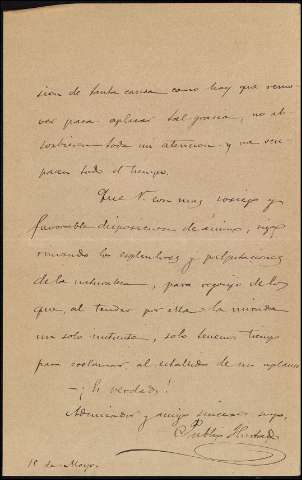 sion de tanta causa como hay que remo-
ver para aplacar tal, no ab-
sorbiesen toda mi atencion y
todo el tiempo.
Que V. con mas sosiego y
favorable disposicion de ánimo, siga
rimando los esplendores y palpitaciones
de la naturaleza, para regocijo de los
que, al tender por ella la mirada
un solo instante, solo tenemos tiempo
para exclamar al estallido de un aplauso
— ¡Es verdad!
Admirador y amigo sincero suyo,
Publio Hurtado
15 de Mayo.